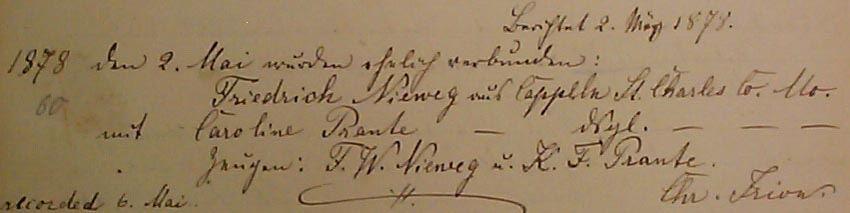 Berichtet 2. März 1878.
1878 den 2. Mai wurden ehelich verbunden:
Friedrich Nieweg aus Cappeln St. Charles Co. Mo.
60
mit Caroline Prante — dsgl. — — —
Zeugen: F. W. Nieweg u. K. F. Prante.
recorded 6. Mai. Chr. Irion.